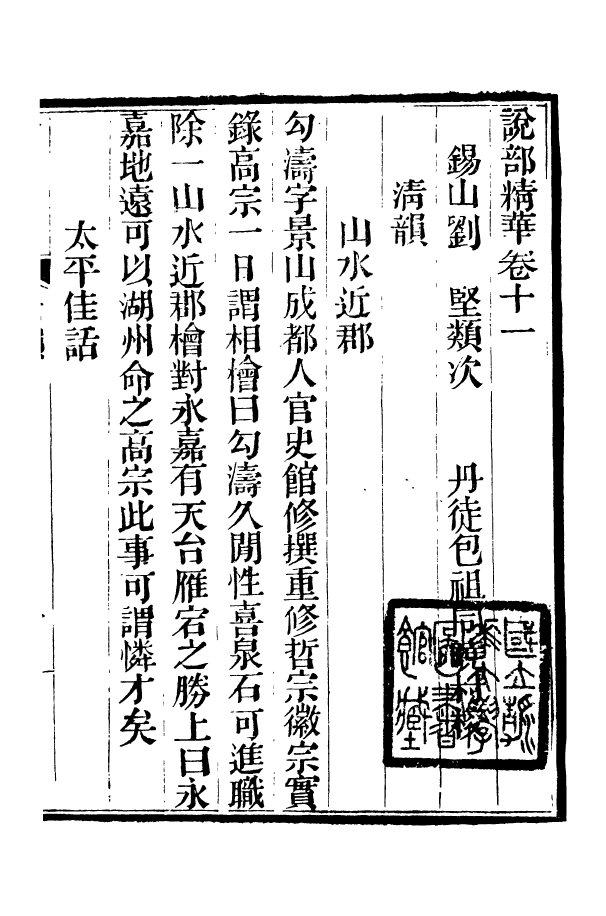 說部精華卷十一
錫山劉　堅類次　丹徒包祖同
清韻
山水近郡
勾濤字景山成都人官史館修撰重修哲宗徽宗實
錄高宗一日謂相檜曰勾濤久閒性喜泉石可進職
除一山水近郡檜對永嘉有天台雁宕之勝上曰永
嘉地遠可以湖州命之高宗此事可謂憐才矣
太平佳話